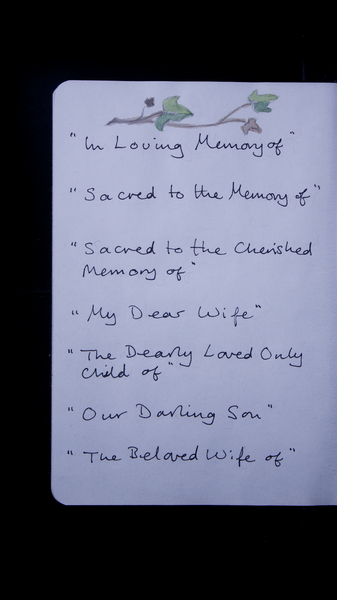 "In Loving Memory of"
"Sacred to the Memory of"
"Sacred to the Cherished
Memory of"
"My Dear Wife"
"The Dearly Loved Only
Child of"
"Our Darling Son"
"The Beloved Wife of"